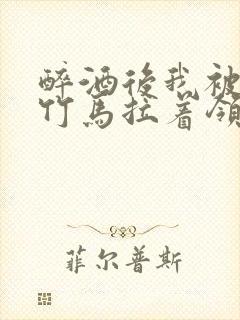 醉酒後我被
竹馬拉着領
菲尔普斯